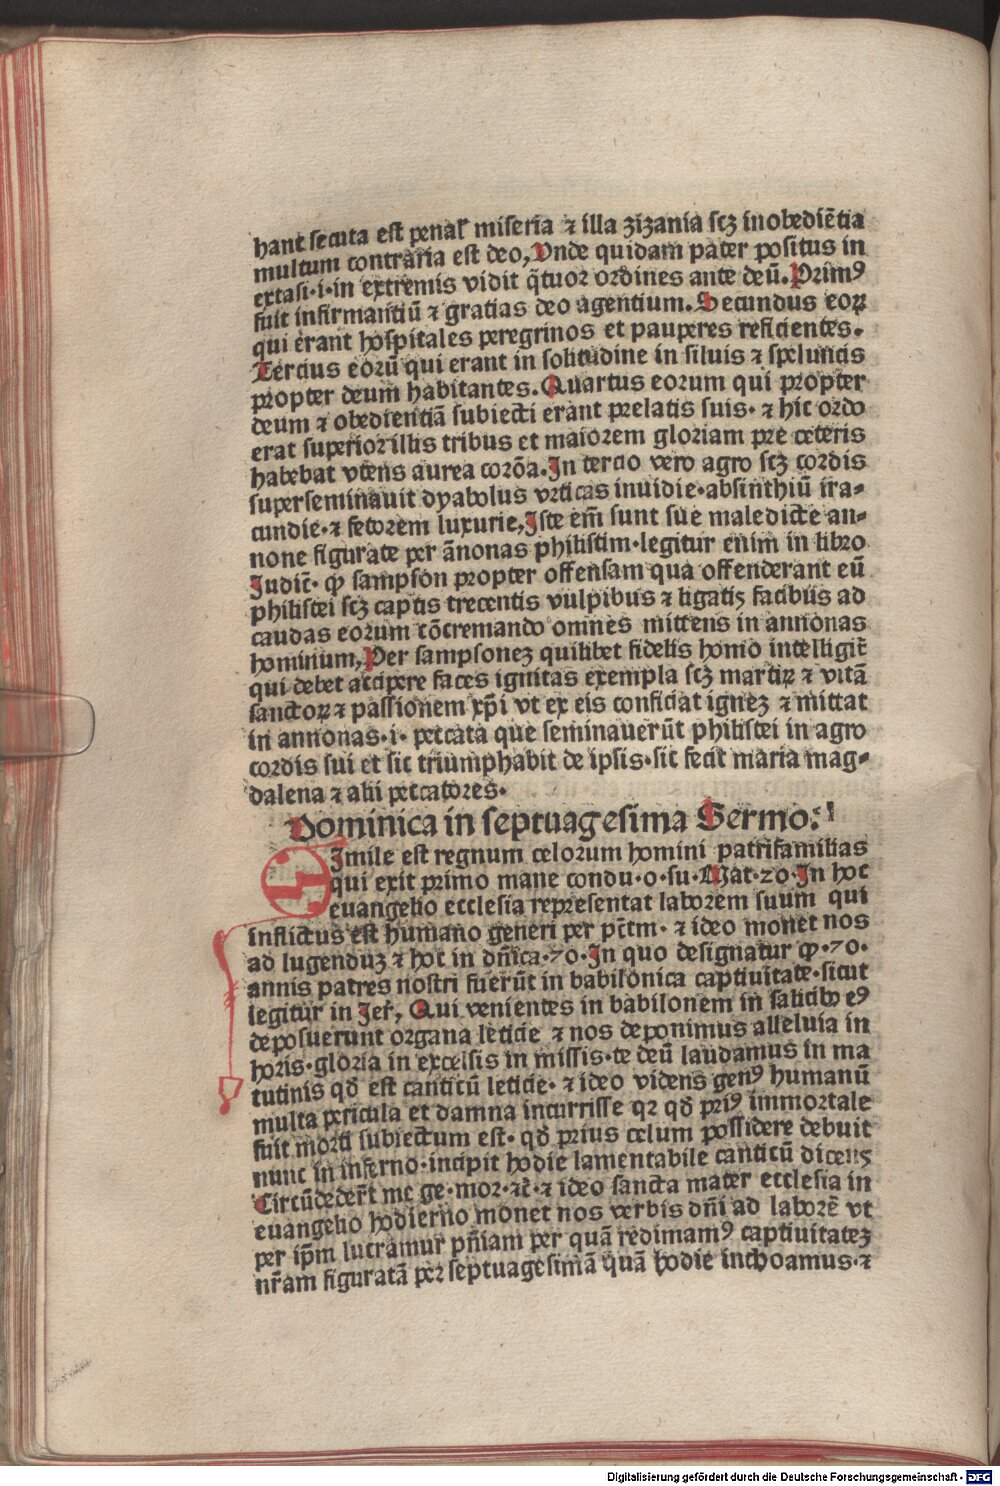 hanc secuta est penaɫ miseria ⁊ illa zizania scꝫ inobediẽtia
multum contraria est deo, Vnde quidam pater positus in
extasi·i·in extremis vidit q̃tuor ordines ante deũ. Primꝰ
fuit infirmantiũ ⁊ gratias deo agentium. Secundus eoꝝ
qui erant hospitales peregrinos et pauperes reficientes.
Tercius eorũ qui erant in solitudine in siluis ⁊ speluncis
propter deum habitantes. Quartus eorum qui propter
deum ⁊ obedientiã subiecti erant prelatis suis· ⁊ hic ordo
erat superior illis tribus et maiorem gloriam pre ceteris
habebat vtens aurea corõa. In tercio vero agro scꝫ cordis
superseminauit dyabolus vrticas inuidie·absinthiũ ira-
cundie·⁊ fetorem luxurie, Iste em̃ sunt sue maledicte an-
none figurate per ãnonas philistim·legitur enim in libro
Iudic̃· ꝙ sampson propter offensam qua offenderant eũ
philistei scꝫ captis trecentis vulpibus ⁊ ligatis facibus ad
caudas eorum cõcremando omnes mittens in annonas
hominum, Per sampsoneꝫ quilibet fidelis homo intelligit̃
qui debet accipere faces ignitas exempla scꝫ martiꝝ ⁊ vitã
sanctoꝝ ⁊ passionem xp̃i vt ex eis conficiat igneꝫ ⁊ mittat
in annonas·i· peccata que seminauerũt philistei in agro
cordis sui et sic triumphabit de ipsis·sic fecit maria mag-
dalena ⁊ alii peccatores·
Dominica in septuagesima Sermo. I
SImile est regnum celorum homini patrifamilias
qui exit primo mane condu·o·su·Mat·20·In hoc
euangelio ecclesia representat laborem suum qui
inflictus est humano generi per pc̃tm· ⁊ ideo monet nos
ad lugenduꝫ ⁊ hoc in dñica·70·In quo designatur ꝙ·70·
annis patres nostri fuerũt in babilonica captiuitate·sicut
legitur in Jer̃, Qui venientes in babilonem in salicibꝰ eꝰ
deposuerunt organa leticie ⁊ nos deponimus alleluia in
horis·gloria in excelsis in missis·te deũ laudamus in ma
tutinis qđ est canticũ leticie· ⁊ ideo videns genꝰ humanũ
multa pericula et damna incurrisse qꝛ qđ priꝰ immortale
fuit morti subiectum est· qđ prius celum possidere debuit
nunc in inferno·incipit hodie lamentabile canticũ dicens
Circũdeder̃t me ge·mor·⁊c̃·⁊ ideo sancta mater ecclesia in
euangelio hodierno monet nos verbis dñi ad laborẽ vt
per ip̃m lucramur pñiam per quã redimamꝰ captiuitateꝫ
nr̃am figuratã per septuagesimã quã hodie inchoamus·⁊
Digitalisierung gefördert durch die Deutsche Forschungsgemeinschaft - DFG